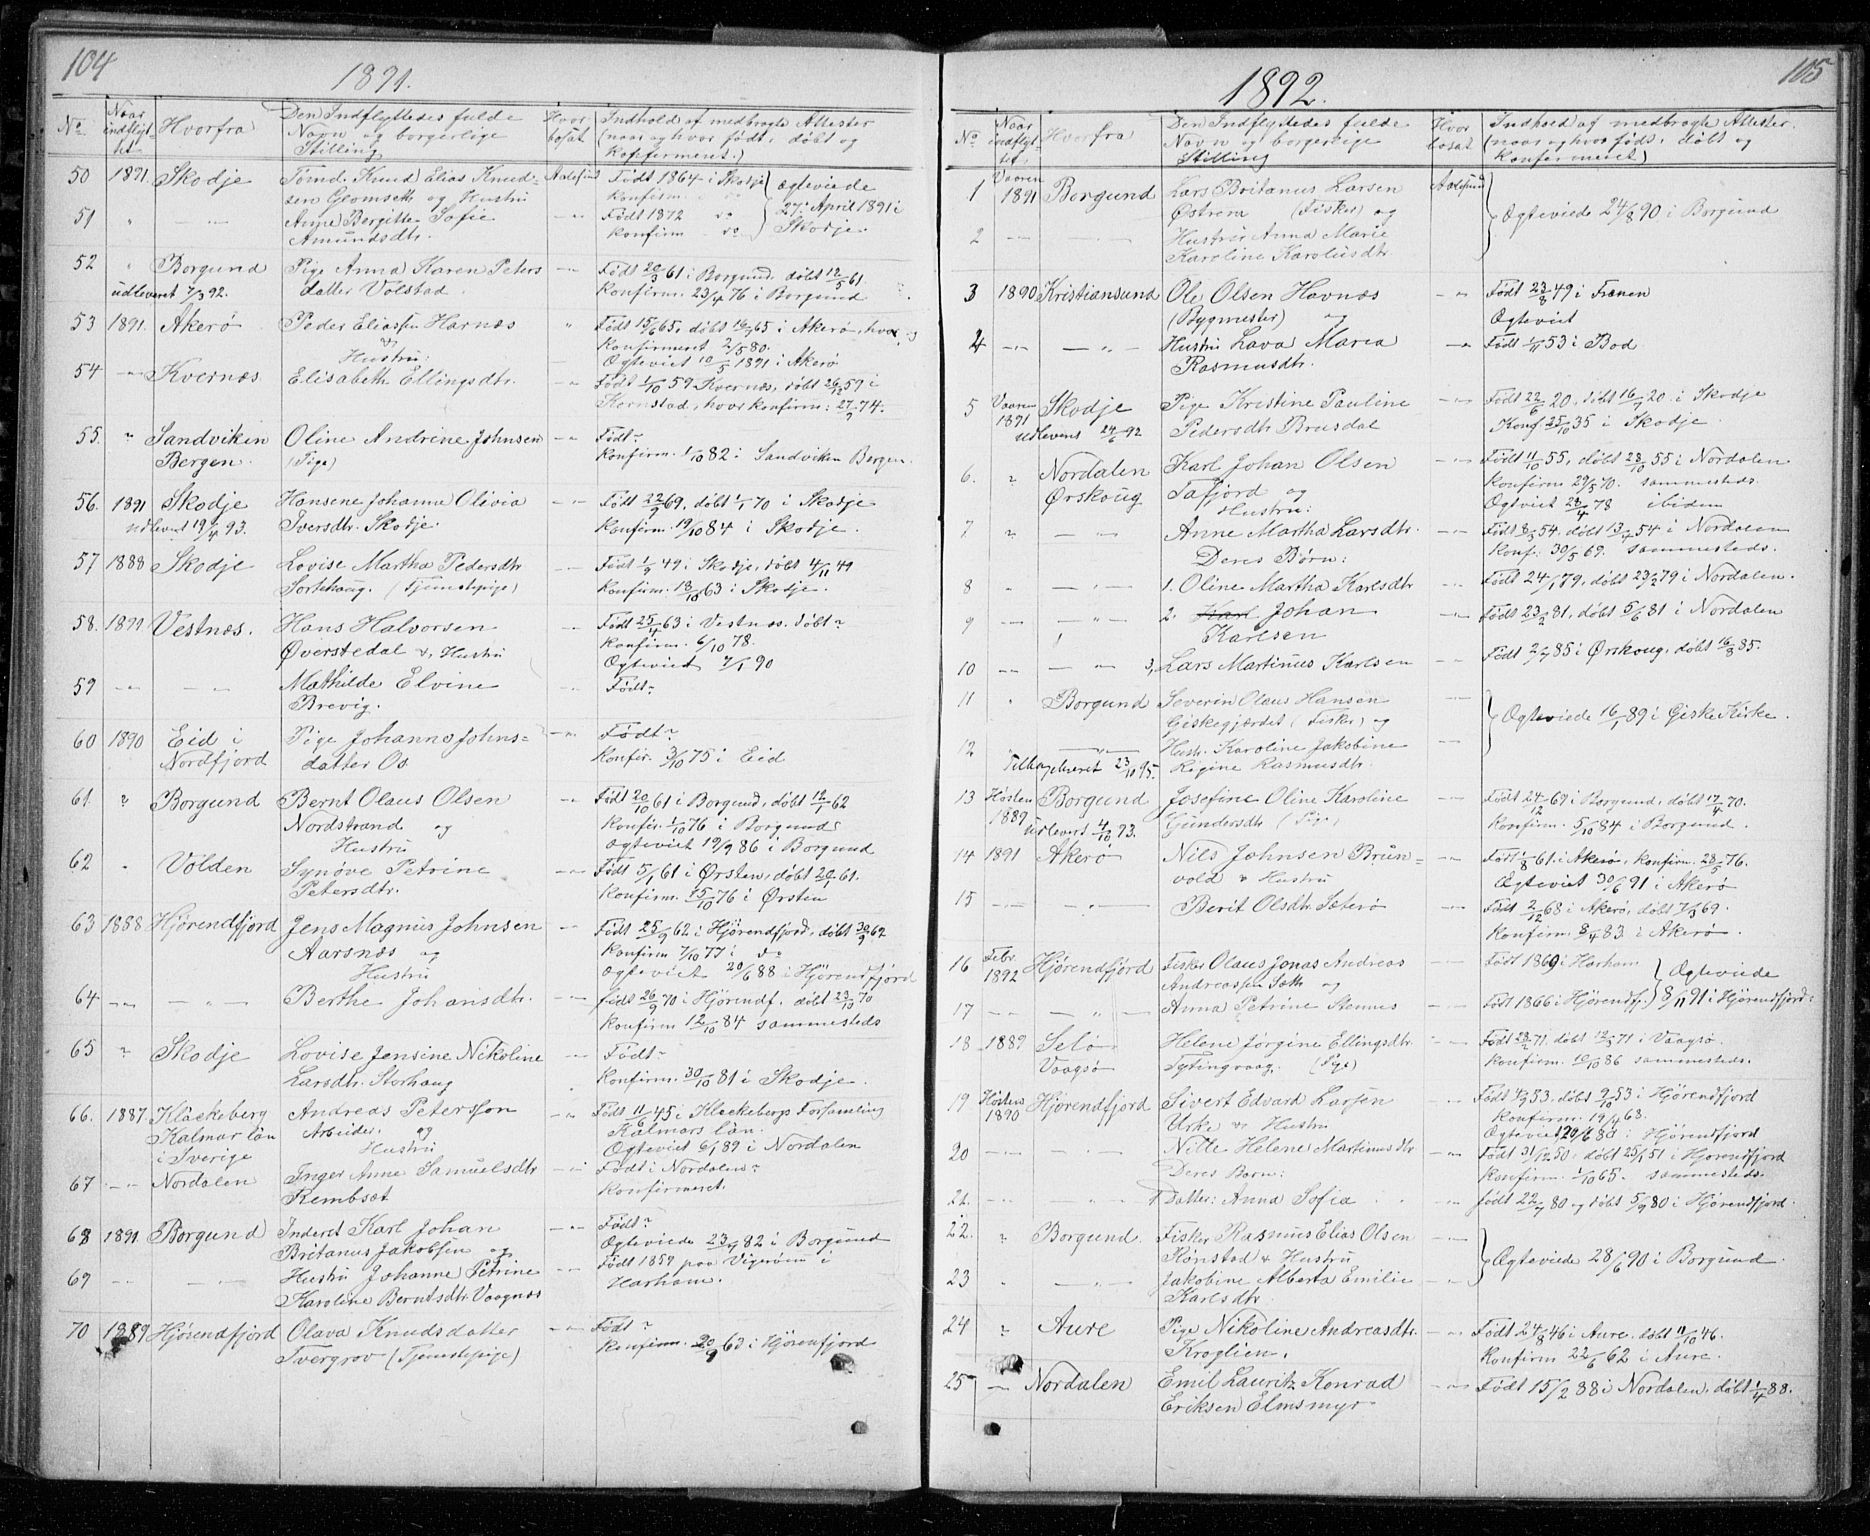 104
1891.
No
Naar indflyttet
Hvorfra
Den Indflyttedes fulde Navn og borgerlige Stilling
Hvor bosat
Indhold af medbragte Attester (naar og hvor født, døbt og konfirmeret.)
50 1891. Skodje Tømd. Knud Elias Knud- Aalesund Født 1864 i Skodje Ægteviede
sen Glomseth og Hustru konfirm. 27. April 1891 i
51 " — Bergitte Sofie —"— Født 1872 do Skodje.
Amundsdtr. konfirm do
52 " Borgund Pige Anna Karen Peters —"— Født 20/3 61 i Borgund, døbt 12/5 61
udleveret 7/3 92. datter Volstad. konfirm. 23/4 76 i Borgund
53 1891. Akerø Peder Eliassen Harnæs " Født 15/6 65, døbt 16/7 65 i Akerø, hvor og
& konfirmeret 2/5 80.
Hustru: Ægteviet 10/5 1891 i Akerø
54 —"— Kvernæs Elisabeth Ellingsdtr. —"— Født 1/10 59 Kvernæs, døbt 26/12 59 i
Kornstad, hvor konfirm: 27/9 74.
55. " Sandviken Oline Andrine Johnsen —"— Født ~
Bergen. (Pige) konfirm. 1/10 82 i Sandviken Bergen.
56. 1891 Skodje Hansene Johanna Olivia —"— Født 22/9 69, døbt 1/1 70 i Skodje
udlevert 19/4 93. Iversdtr. Skodje. konfirm. 19/10 84 i Skodje.
57 1888 Skodje Lovise Martha Pedersdtr —"— Født 1/9 49 i Skodje, døbt 4/11 49
Sortehaug. (Tjenestepige) konfirm. 18/10 63 i Skodje.
58. 1891 Vestnæs. Hans Halvorsen —"— Født 25/4 63 i Vestnæs. døbt ~
Øverstedal &, Hustru konfirm. 6/10 78.
Ægteviet 7/1 90
59 —"— —"— Mathilde Elvine —"— Født ~
Brevig.
60 1890 Eid i Pige Johanna Johns= —"— Født ~
Nordfjord datter Os konfir. 3/10 75 i Eid
61. " Borgund Bernt Olaus Olsen —"— Født 20/10 61 i Borgund, døbt 12/1 62
Nordstrand og konfir. 1/10 76 i Borgund
Hustru Ægteviet 19/9 86 i Borgund
62 " Volden Synøve Petrine —"— Født 5/1 61 i Ørsten, døbt 20/1 61.
Petersdtr. konfirm. 15/10 76 i Ørsten
63 1888 Hjørendfjord Jens Magnus Johnsen —"— Født 25/9 62 i Hjørendfjord, døbt 30/9 62
Aarsnæs og konfirm 7/10 77 i do
Hustru Ægteviet 20/6 88 i Hjørendfjord
64 —"— —"— Berthe Johansdtr. —"— født 26/9 70 i Hjørendf. døbt 23/10 70
konfirm 12/10 84 sammesteds
65 " Skodje Lovise Jensine Nikoline —"— Født ~
Larsdtr. Storhaug konfirm. 30/10 81 i Skodje.
66. 1887 Klackeberg Andreas Petersson —"— Født 11/6 45 i Klackebergs Forsamling
Kalmar län Arbeider. og Kalmars län.
i Sverige Hustru Ægteviet 6/1 89 i Nordalen
67 —"— Nordalen Inger Anne Samuelsdtr —"— Født i Nordalen ~
Rembsæt konfirmeret.
68 1891. Borgund Inderst Karl Johan —"— Født ~
Britanus Jakobsen og Ægteviede 23/7 82 i Borgund
69 —"— —"— Hustru Johanne Petrine —"— Født 1859 paa Vigerøen i
Karoline Berntsdtr. Vaagnæs Harham.
70 1889 Hjørendfjord Olava Knudsdatter —"— Født ~
Tvergrov (Tjenestepige) konfirm. 20/9 63 i Hjørendfjord
105
1892.
No
Naar indflyttet
Hvorfra
Den Indflyttedes fulde Navn og borgerlige Stilling
Hvor bosat
Indhold af medbragte Attester. (naar og hvor født, døbt og konfirmeret)
1 Vaaren 1891 Borgund Lars Britanus Larsen Aalesund
Østrem (Fisker) og Ægteviede 24/8 90 i Borgund
2 —"— —"— Hustru Anna Marie
Karoline Karolusdtr
3 1890 Kristiansund Ole Olsen Havnæs —"— Født 23/8 49 i Frænen
(Bygmester) og Ægteviet
4 —"— —"— Hustru Lava Maria —"— Født 1/11 53 i Bod
Rasmusdtr.
5 Vaaren 1891 Skodje Pige Kristine Pauline —"— Født 22/6 20, døbt 16/7 20 i Skodje
udlevert 24/6 92 Pedersdtr Brusdal Konf. 25/10 35 i Skodje.
6. " Nordalen Karl Johan Olsen —"— Født 11/10 55, døbt 28/10 55 i Nordalen
Ørskoug Tafjord og konfirm 29/5 70. sammesteds.
Hustru: Ægteviet 28/4 78 ibidem
7 " —"— Anne Martha Larsdtr. —"— Født 8/3 54, døbt 13/4 54 i Nordalen
Deres Børn: konf. 30/5 69. sammesteds.
8 " —"— 1. Oline Martha Karlsdtr —"— Født 24/1 79, døbt 23/2 79 i Nordalen.
9 —"— —"— 2. Karl Johan —"— Født 23/2 81, døbt 5/6 81 i Nordalen
Karlsen
10 —"— —"— 3, Lars Martinus Karlsen —"— Født 2/7 85 i Ørskoug, døbt 16/8 85.
11 " Borgund Severin Olaus Hansen —"—
Giskegjærdet (Fisker) og Ægteviede 16/1 89 i Giske Kirke.
12 " —"— Hustr. Karoline Jakobine —"—
Tilbageleveret 23/10 95. Regine Rasmusdtr.
13 Høsten 1889 Borgund Josefine Oline Karoline —"— Født 24/12 69 i Borgund, døbt 17/4 70.
udlevert 4/10 93. Gundersdtr (Pige) konfirm. 5/10 84 i Borgund.
14 1891 Akerø Nils Johnsen Brun- —"— Født 1/8 61 i Akerø, konfirm. 28/5 76.
vold & Hustru Ægteviet 30/6 91 i Akerø
15 —"— —"— Berit Olsdtr. Sæterø —"— Født 2/12 68 i Akerø, døbt 7/3 69.
konfirm. 8/4 83 i Akerø.
16 Febr. 1892 Hjørendfjord Fisker Olaus Jonas Andreas —"— Født 1869 i Harham Ægteviede
Andreassen Sæth og
17 —"— —"— Anna Petrine Stennes —"— Født 1866 i Hjørendf. 8/11 91 i Hjørendfjord.
18 1889 Selø Helene Jørgine Ellingsdtr. —"— Født 28/2 71, døbt 12/5 71 i Vaagsø.
Vaagsø Tytingvaag. (Pige) konfirm. 10/10 86 sammesteds.
19 Høsten 1890 Hjørendfjord Sivert Edvard Larsen —"— Født 4/9 53, døbt 9/10 53 i Hjørendfjord
Urke & Hustru konfirm. 19/4 68.
Ægteviet 20/6 80 i Hjørendfjord
20 —"— —"— Nille Helene Martinusdtr —"— Født 31/12 50, døbt 25/1 51 i Hjørendfjord
Deres Barn: konfirm. 1/10 65. sammesteds.
22. —"— —"— 1 Datter: Anna Sofia født 22/7 80 og døbt 5/9 80 i Hjørendfjord.
22. " Borgund Fisker Rasmus Elias Olsen —"—
Rønstad & Hustru Ægteviede 28/6 90 i Borgund.
23 " —"— Jakobine Alberta Emilie —"—
Karlsdtr.
24 " Aure Pige Nikoline Andreasdtr. —"— Født 24/8 46 i Aure. døbt 11/10 46.
Kroglien. konfirm 22/6 62 i Aure.
25 —"— Nordalen Emil Lauritz Konrad —"— Født 15/2 88 i Nordalen, døbt 1/4 88.
Eriksen Elmsmyr